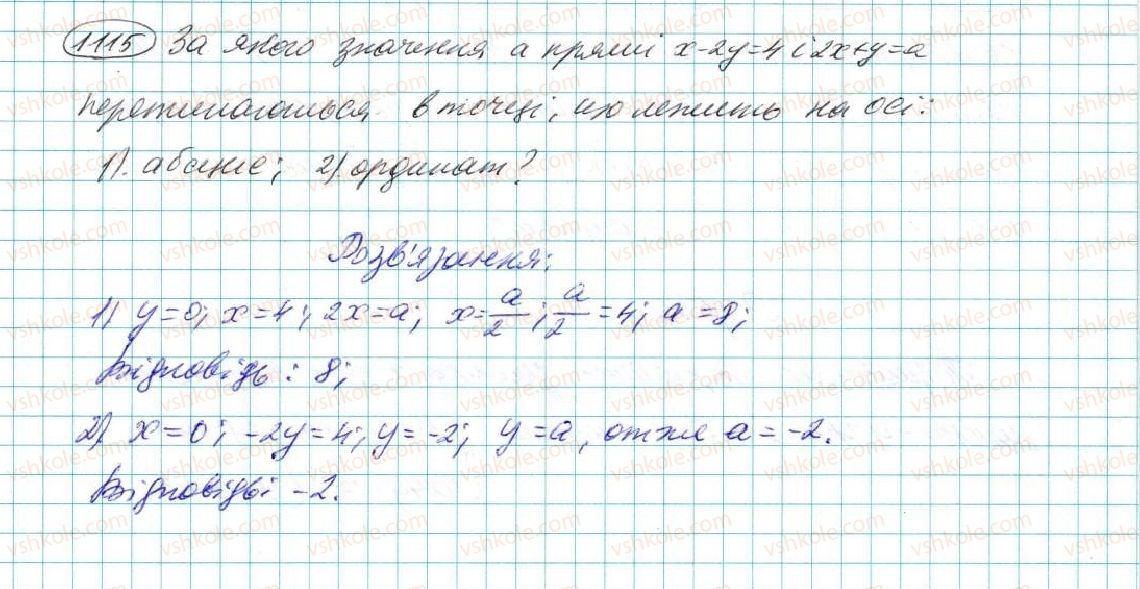 1115 За якого значення a прямі x-2y=4 і 2x+y=a
перетинаються в точці, що лежить на осі:
1). абсцис; 2). ординат?
Розв'язання:
1) y=0; x=4; 2x=a; x=a/2; a/2=4; a=8;
Відповідь: 8;
2). x=0; -2y=4; y=-2; y=a, отже a=-2.
Відповідь: -2.
vshkole.com